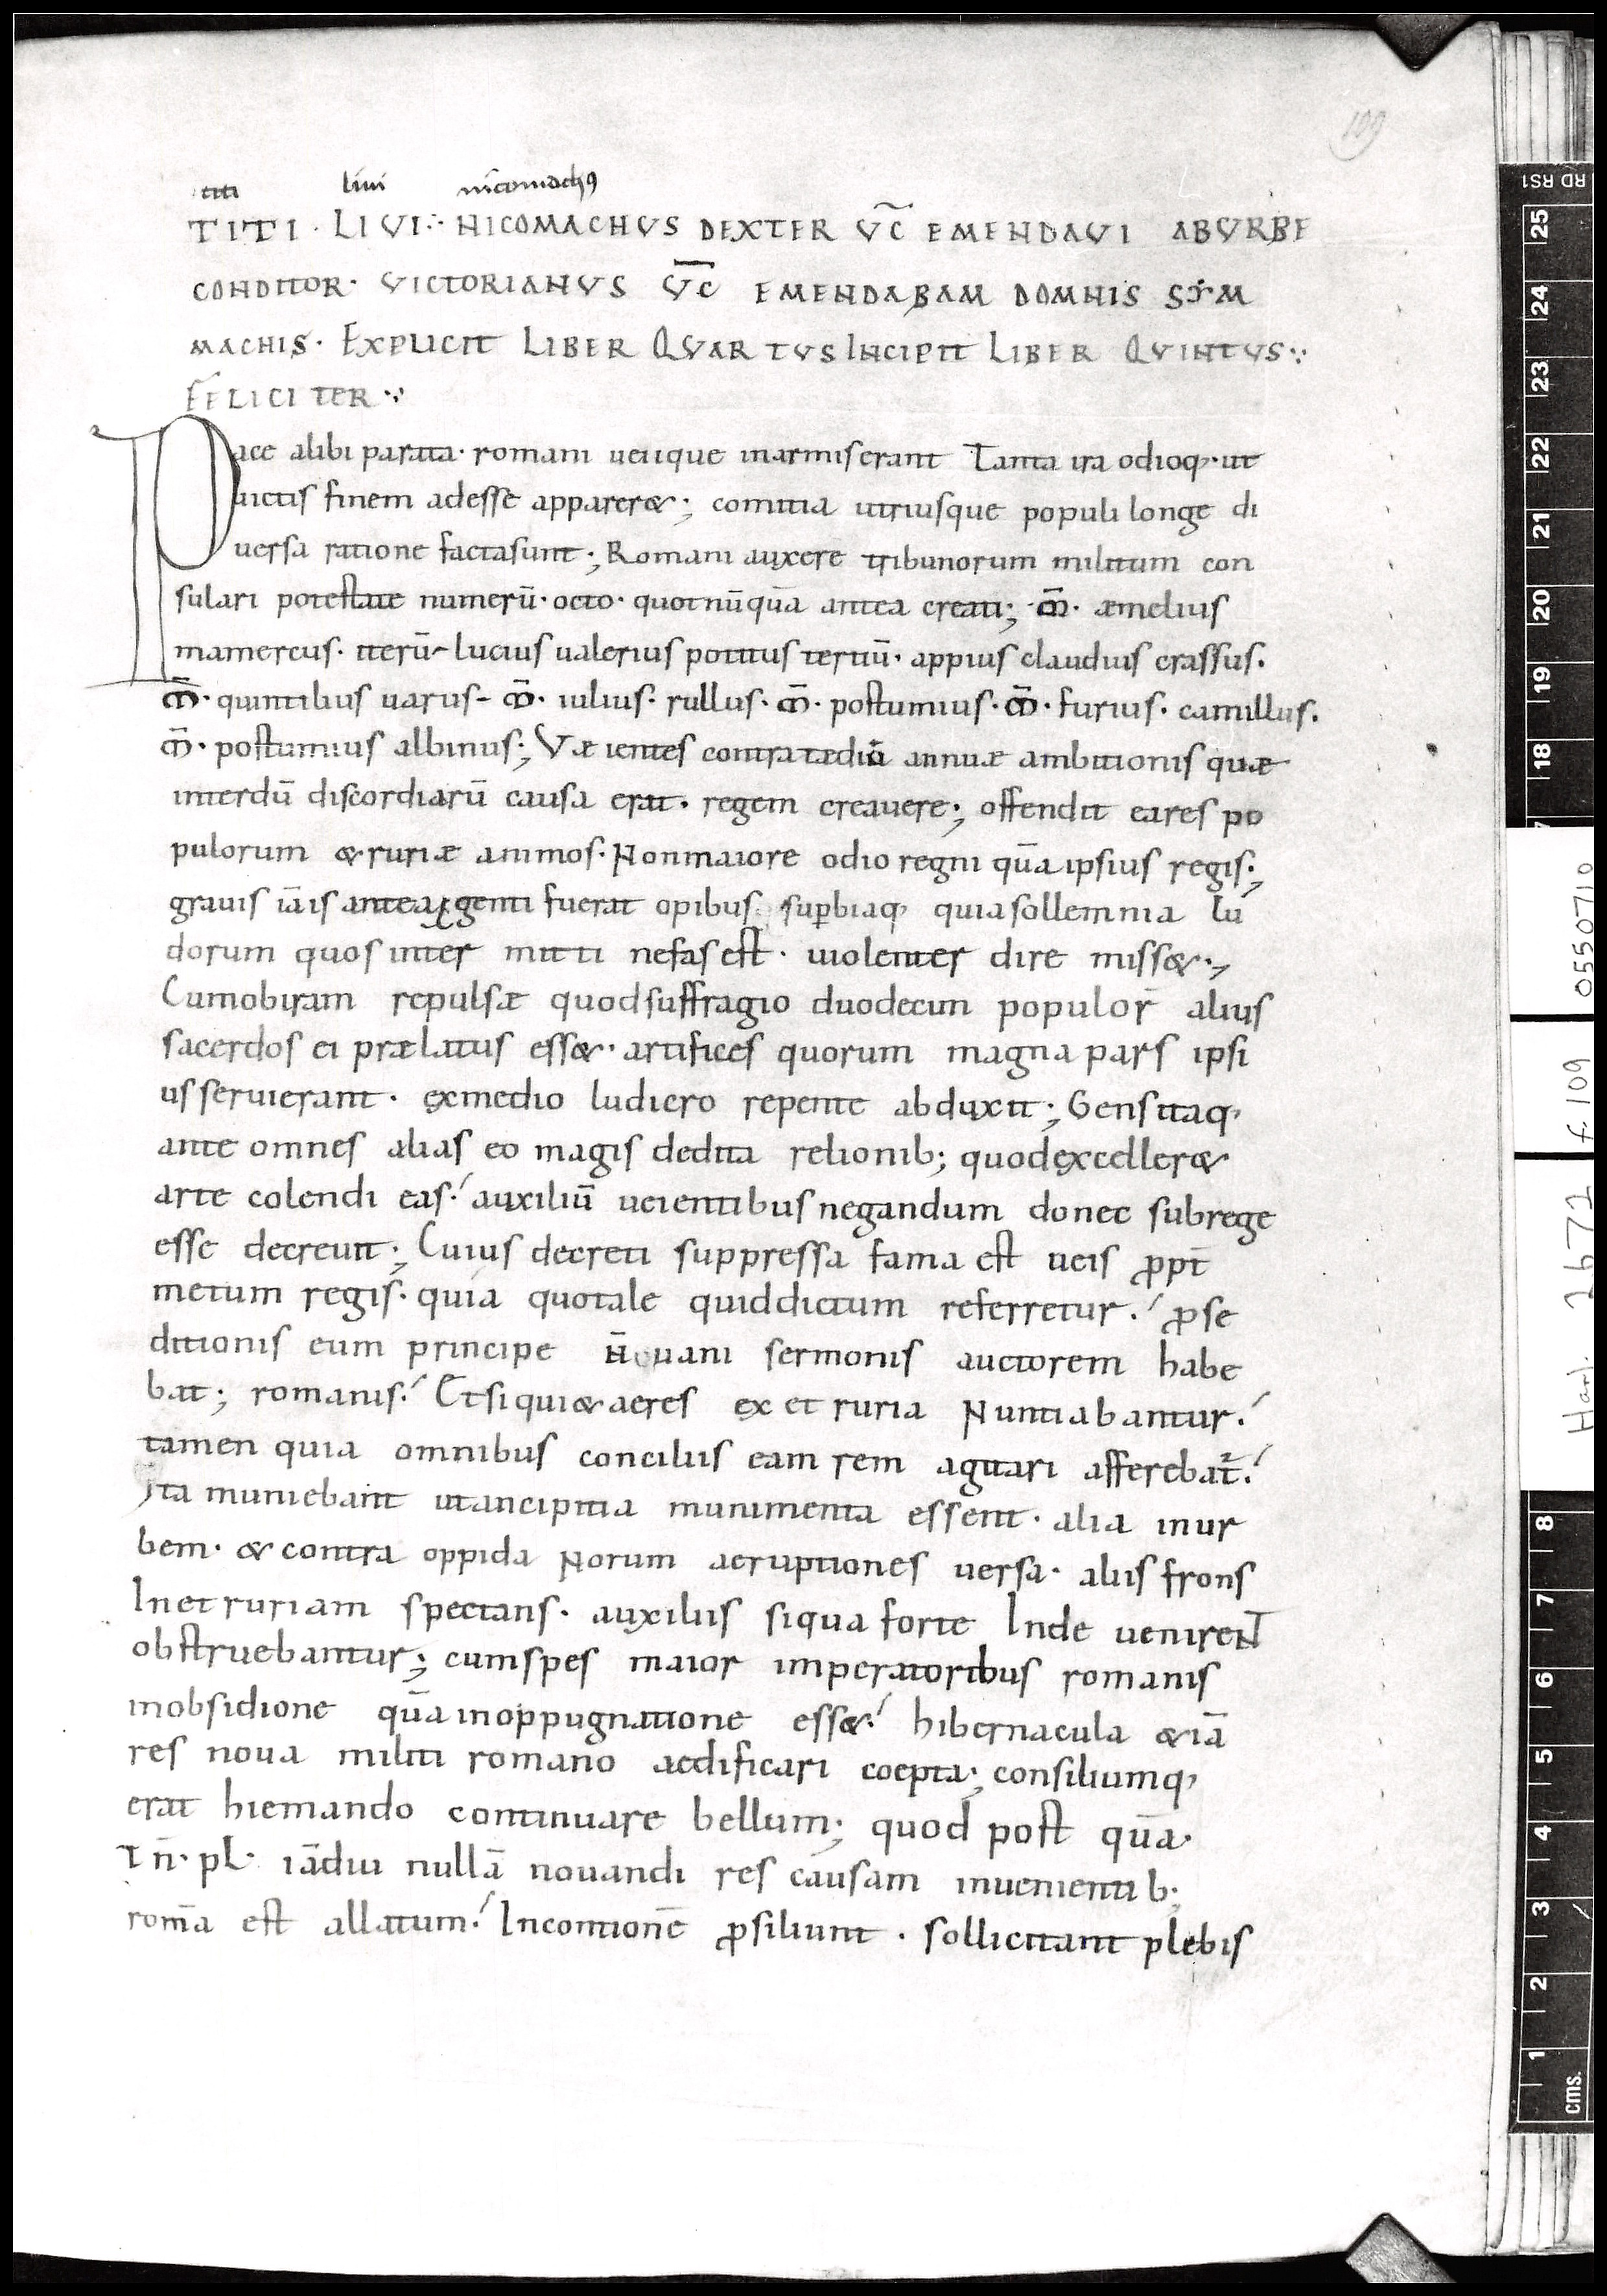 109
titi livi nicomachꝰ
TITI · LIVI ∵ NICOMACHVS DEXTER V̅C̅ EMENDAVI ABVRBE
CONDITOR · VICTORIANVS V̅C̅ EMENDABAM DOMNIS SYM
MACHIS · EXPLICIT LIBER QVARTVS INCIPIT LIBER QVINTVS ∵
FELICITER ∵
Pace alibi parata · romani ueiique inarmiserant Tanta ira odioq; · ut
uictis finem adesse apparer&; comitia utriusque populi longe di
uersa ratione factasunt; Romani auxere tribunorum militum con
sulari potestate numerū · octo · quotnūquā antea creati; m̄ · æmelius
mamercus · iterū lucius ualerius potitus tertiū · appius claudius crassus ·
m̄ · quintilius uarus - m̄ · iulius · rullus · m̄ · postumius · m̄ · furius · camillus ·
m̄ · postumius albinus; Væientes contra tædiū annuæ ambitionis quæ
interdū discordiarū causa erat · regem creauere; offendit eares po
pulorum &ruriæ animos · Nonmaiore odio regni quā ipsius regis;
grauis iāis anteaxgenti fuerat opibus sup̄biaq; quiasollemnia lu
dorum quos inter mitti nefas est · uiolenter dire miss&;
Cumobiram repulsæ quodsuffragio duodecim populor̄ alius
sacerdos ei prælatus ess& · artifices quorum magna pars ipsi
us seruierant · exmedio ludicro repente abduxit; Gens itaq;
ante omnes alias eo magis dedita relionib; quodexceller&
arte colendi eas ·́ auxiliū ueientibus negandum donec subrege
esse decreuit; Cuius decreti suppressa fama est ueis ꝓpt̄
metum regis · quia quotale quiddictum referretur ·́ ꝓse
ditionis eum principe N̄ uani sermonis auctorem habe
bat; romanis ·́ Etsi qui&aeres ex et ruria Nuntiabantur ·́
tamen quia omnibus conciliis eam rem agitari afferebat̄ ·́
Ita muniebant utancipitia munimenta essent · alia inur
bem · & contra oppida Norum aeruptiones uersa · aliis frons
Inet ruriam spectans · auxiliis siqua forte Inde uenireNT
obstruebantur; cumspes maior imperatoribus romanis
inobsidione quā inoppugnatione ess& ·́ hibernacula &iā
res noua militi romano aedificari coepta; consiliumq;
erat hiemando continuare bellum; quod post quā ·
Tn̄ · pl · iādiu nullā nouandi res causam inuenientib;
romā est allatum ·́ Incontionē ꝓsiliunt · sollicitant plebis
RD RS1
25
23
22
21
20
19
18
8
7
6
5
4
3
2
1
cms.
0550710
f. 109
Harl. 2672